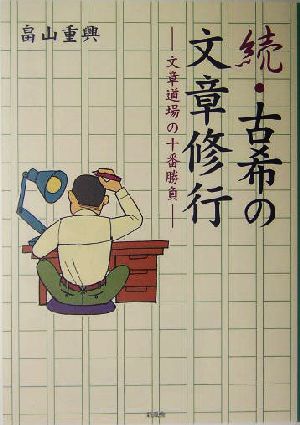 続・古希の
文章修行
―文章道場の十番勝負―
畠山重興